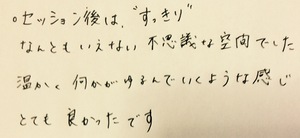 ○セッション後は、"すっきり"
なんともいえない不思議な空間でした
温かく何かがゆるんでいくような感じ
とても良かったです